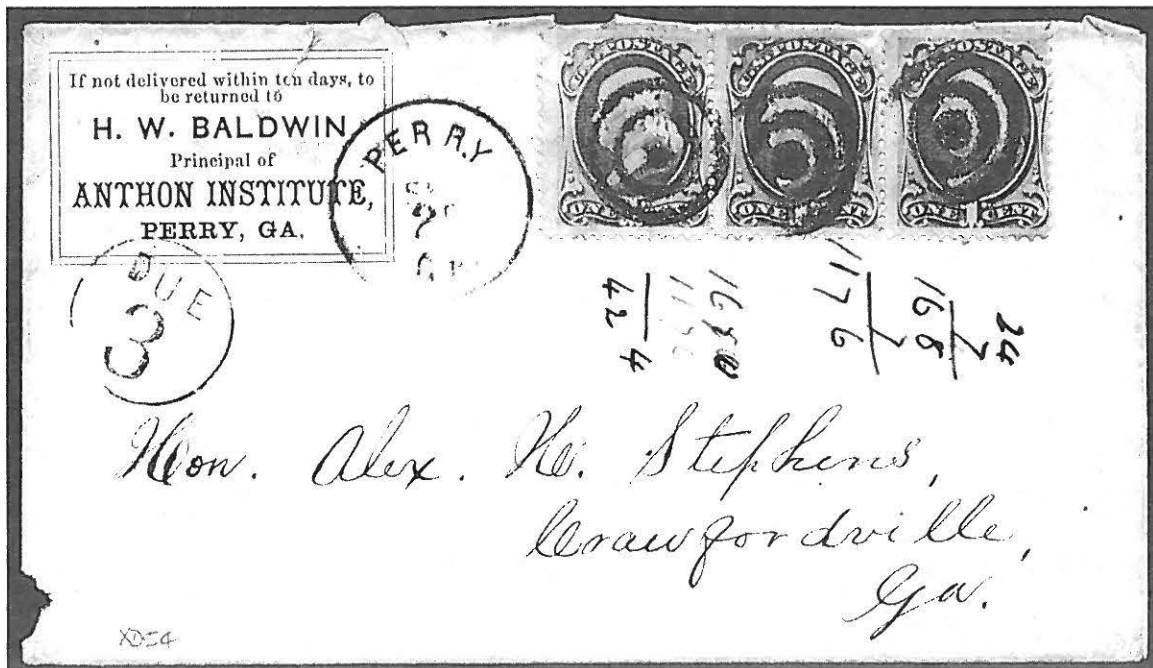 If not delivered within ten days, to
be returned to
H. W. BALDWIN
Principal of
ANTHON INSTITUTE,
PERRY, GA.
PERRY
7
U.S. POSTAGE
ONE CENT
U.S. POSTAGE
ONE 1 CENT
U.S. POSTAGE
ONE 1 CENT
DUE
3
42
4
1680
117
6
7
168
7
24
Hon. Alex. H. Stephens,
Crawfordville,
Ga.